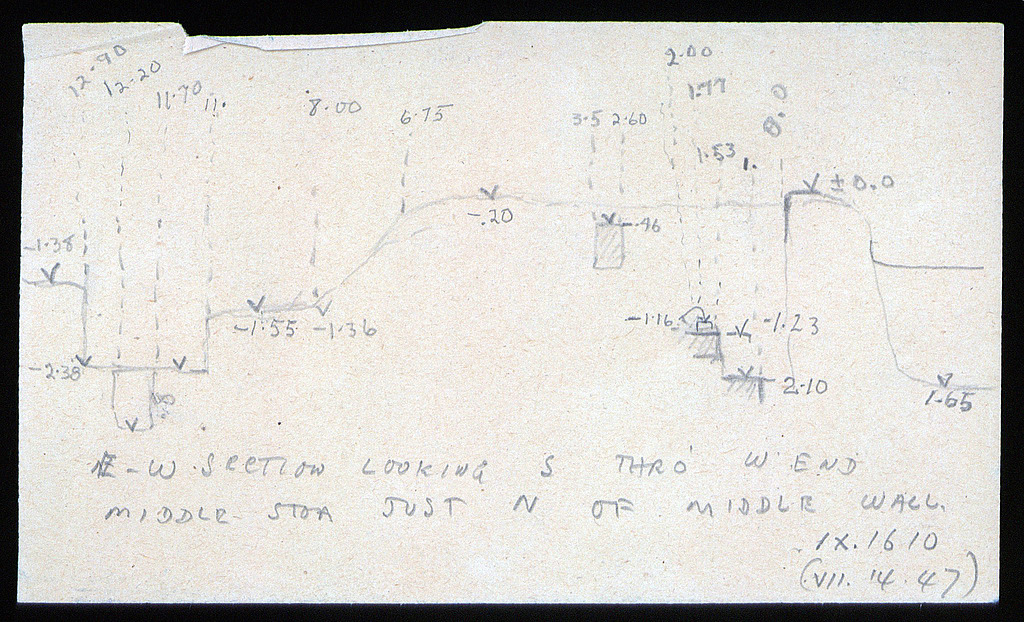 12.90
12.20
11.70
11.
8.00
6.75
3.5 2.60
2.00
1.77
1.53
1.
0.0
± 0.0
-.20
-.46
-1.38
-1.55 -1.36
-1.16
-1.23
-2.38
2.10
1.65
E-W SECTION LOOKING S THRO' W END
MIDDLE STOA JUST N OF MIDDLE WALL.
IX.1610
(VII. 14. 47)